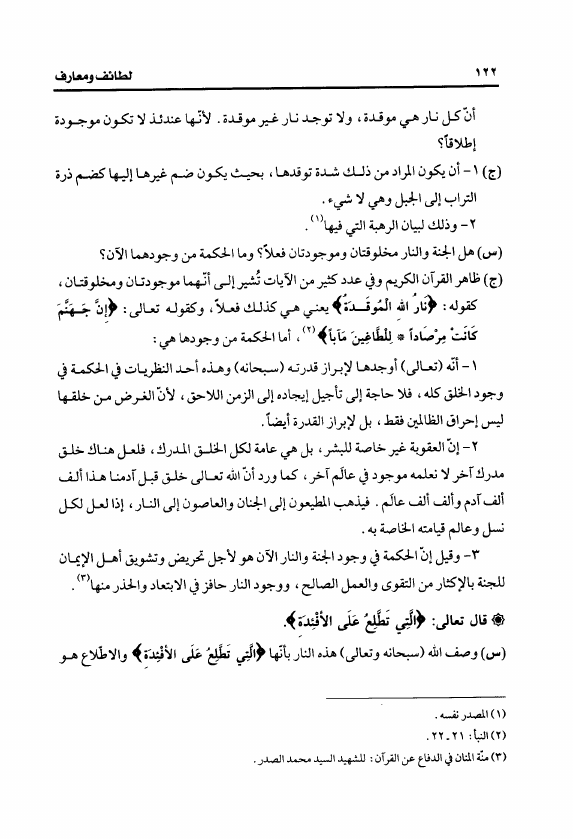 ١٢٢ لطائف ومعارف
أنّ كل نار هي موقدة، ولا توجد نار غير موقدة. لأنّها عندئذ لا تكون موجودة
إطلاقاً؟
(ج) ١- أن يكون المراد من ذلك شدة توقدها، بحيث يكون ضم غيرها إليها كضم ذرة
التراب إلى الجبل وهي لا شيء.
٢- وذلك لبيان الرهبة التي فيها(١).
(س) هل الجنة والنار مخلوقتان وموجودتان فعلاً؟ وما الحكمة من وجودهما الآن؟
(ج) ظاهر القرآن الكريم وفي عدد كثير من الآيات تُشير إلى أنّهما موجودتان ومخلوقتان،
كقوله: ﴿نَارُ الله الْمُوقَدَةُ﴾ يعني هي كذلك فعلاً، وكقوله تعالى: ﴿إِنَّ جَهَنَّمَ
كَانَتْ مِرْصَاداً * لِلْطَّاغِينَ مَآباً﴾(٢)، أما الحكمة من وجودها هي:
١- أنّه (تعالى) أوجدها لإبراز قدرته (سبحانه) وهذه أحد النظريات في الحكمة في
وجود الخلق كله، فلا حاجة إلى تأجيل إيجاده إلى الزمن اللاحق، لأنّ الغرض من خلقها
ليس إحراق الظالمين فقط، بل لإبراز القدرة أيضاً.
٢- إنّ العقوبة غير خاصة للبشر، بل هي عامة لكل الخلق المدرك، فلعل هناك خلق
مدرك آخر لا نعلمه موجود في عالَم آخر، كما ورد أنّ الله تعالى خلق قبل آدمنا هذا ألف
ألف آدم وألف ألف عالَم. فيذهب المطيعون إلى الجنان والعاصون إلى النار، إذا لعل لكل
نسل وعالم قيامته الخاصة به.
٣- وقيل إنّ الحكمة في وجود الجنة والنار الآن هو لأجل تحريض وتشويق أهل الإيمان
للجنة بالإكثار من التقوى والعمل الصالح، ووجود النار حافز في الابتعاد والحذر منها(٣).
۞ قال تعالى: ﴿الَّتِي تَطَّلِعُ عَلَى الأَفْئِدَةِ﴾.
(س) وصف الله (سبحانه وتعالى) هذه النار بأنّها ﴿الَّتِي تَطَّلِعُ عَلَى الأَفْئِدَةِ﴾ والاطلاع هو
(١) المصدر نفسه.
(٢) النبأ: ٢١ـ٢٢.
(٣) منّة المنان في الدفاع عن القرآن: للشهيد السيد محمد الصدر.